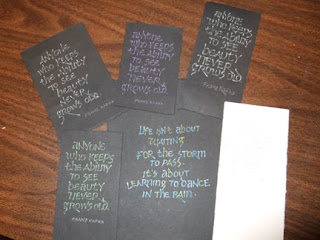 ANYONE
WHO KEEPS
THE ABILITY
TO SEE
BEAUTY
NEVER
GROWS OLD.
FRANZ KAFKA
ANYONE
WHO KEEPS
THE ABILITY
TO SEE
BEAUTY
NEVER
GROWS OLD
FRANZ KAFKA
ANYONE
WHO KEEPS
THE ABILITY
TO SEE
BEAUTY
NEVER
GROWS OLD
FRANZ KAFKA
ANYONE
WHO KEEPS
THE ABILITY
TO SEE
BEAUTY
NEVER
GROWS OLD
FRANZ KAFKA
LIFE ISN'T ABOUT
WAITING
FOR THE STORM
TO PASS.
IT'S ABOUT
LEARNING TO DANCE
IN THE RAIN.